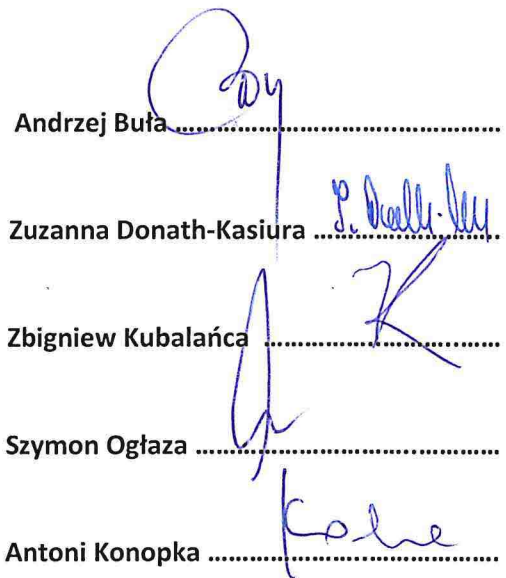 Andrzej Buła ..............................................
Zuzanna Donath-Kasiura ..........................
Zbigniew Kubalańca ................................
Szymon Ogłaza ..........................................
Antoni Konopka ........................................